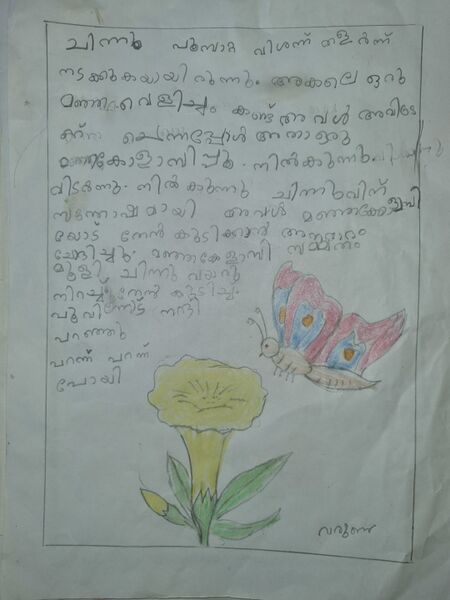 ചിന്നു പൂമ്പാറ്റ വിശന്ന് തളർന്ന്
നടക്കുകയായിരുന്നു. അകലെ ഒരു
മഞ്ഞ വെളിച്ചം കണ്ട് അവൾ അവിടെ
ചെന്നപ്പോൾ അതാ ഒരു
മഞ്ഞകോളാമ്പിപ്പൂ. നിൽക്കുന്നു.
വിടർന്നു. നിൽക്കുന്നു ചിന്നുവിന്
സന്തോഷമായി അവൾ മഞ്ഞക്കോളാമ്പി
യോട് തേൻ കുടിക്കാൻ അനുവാദം
ചോദിച്ചു. മഞ്ഞകോളാമ്പി സമ്മതം
മൂളി ചിന്നു വയറു
നിറച്ച് തേൻ കുടിച്ചു.
പൂവിനോട് നന്ദി
പറഞ്ഞു
പറന്ന് പറന്ന്
പോയി
വരുണ